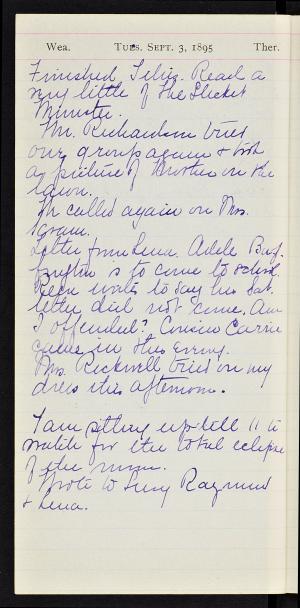 Wea. TUES. SEPT. 3, 1895 Ther.
Finished Felix. Read a
very little of The Little
Minister.
Mr. Richardson tried
our group again & took
a picture of Mother on the
lawn.
We called again on Mrs.
Letter from Lena. Adele
is to come to school.
writes to say his Sat.
letter did not come. Am
I offended? Cousin Carrie
came in this evening.
Mrs. Rockwell tried on my
dress this afternoon.
I am sitting up till 11 to
watch for the total eclipse
of the moon.
Wrote to Lucy Raymond
& Lena.